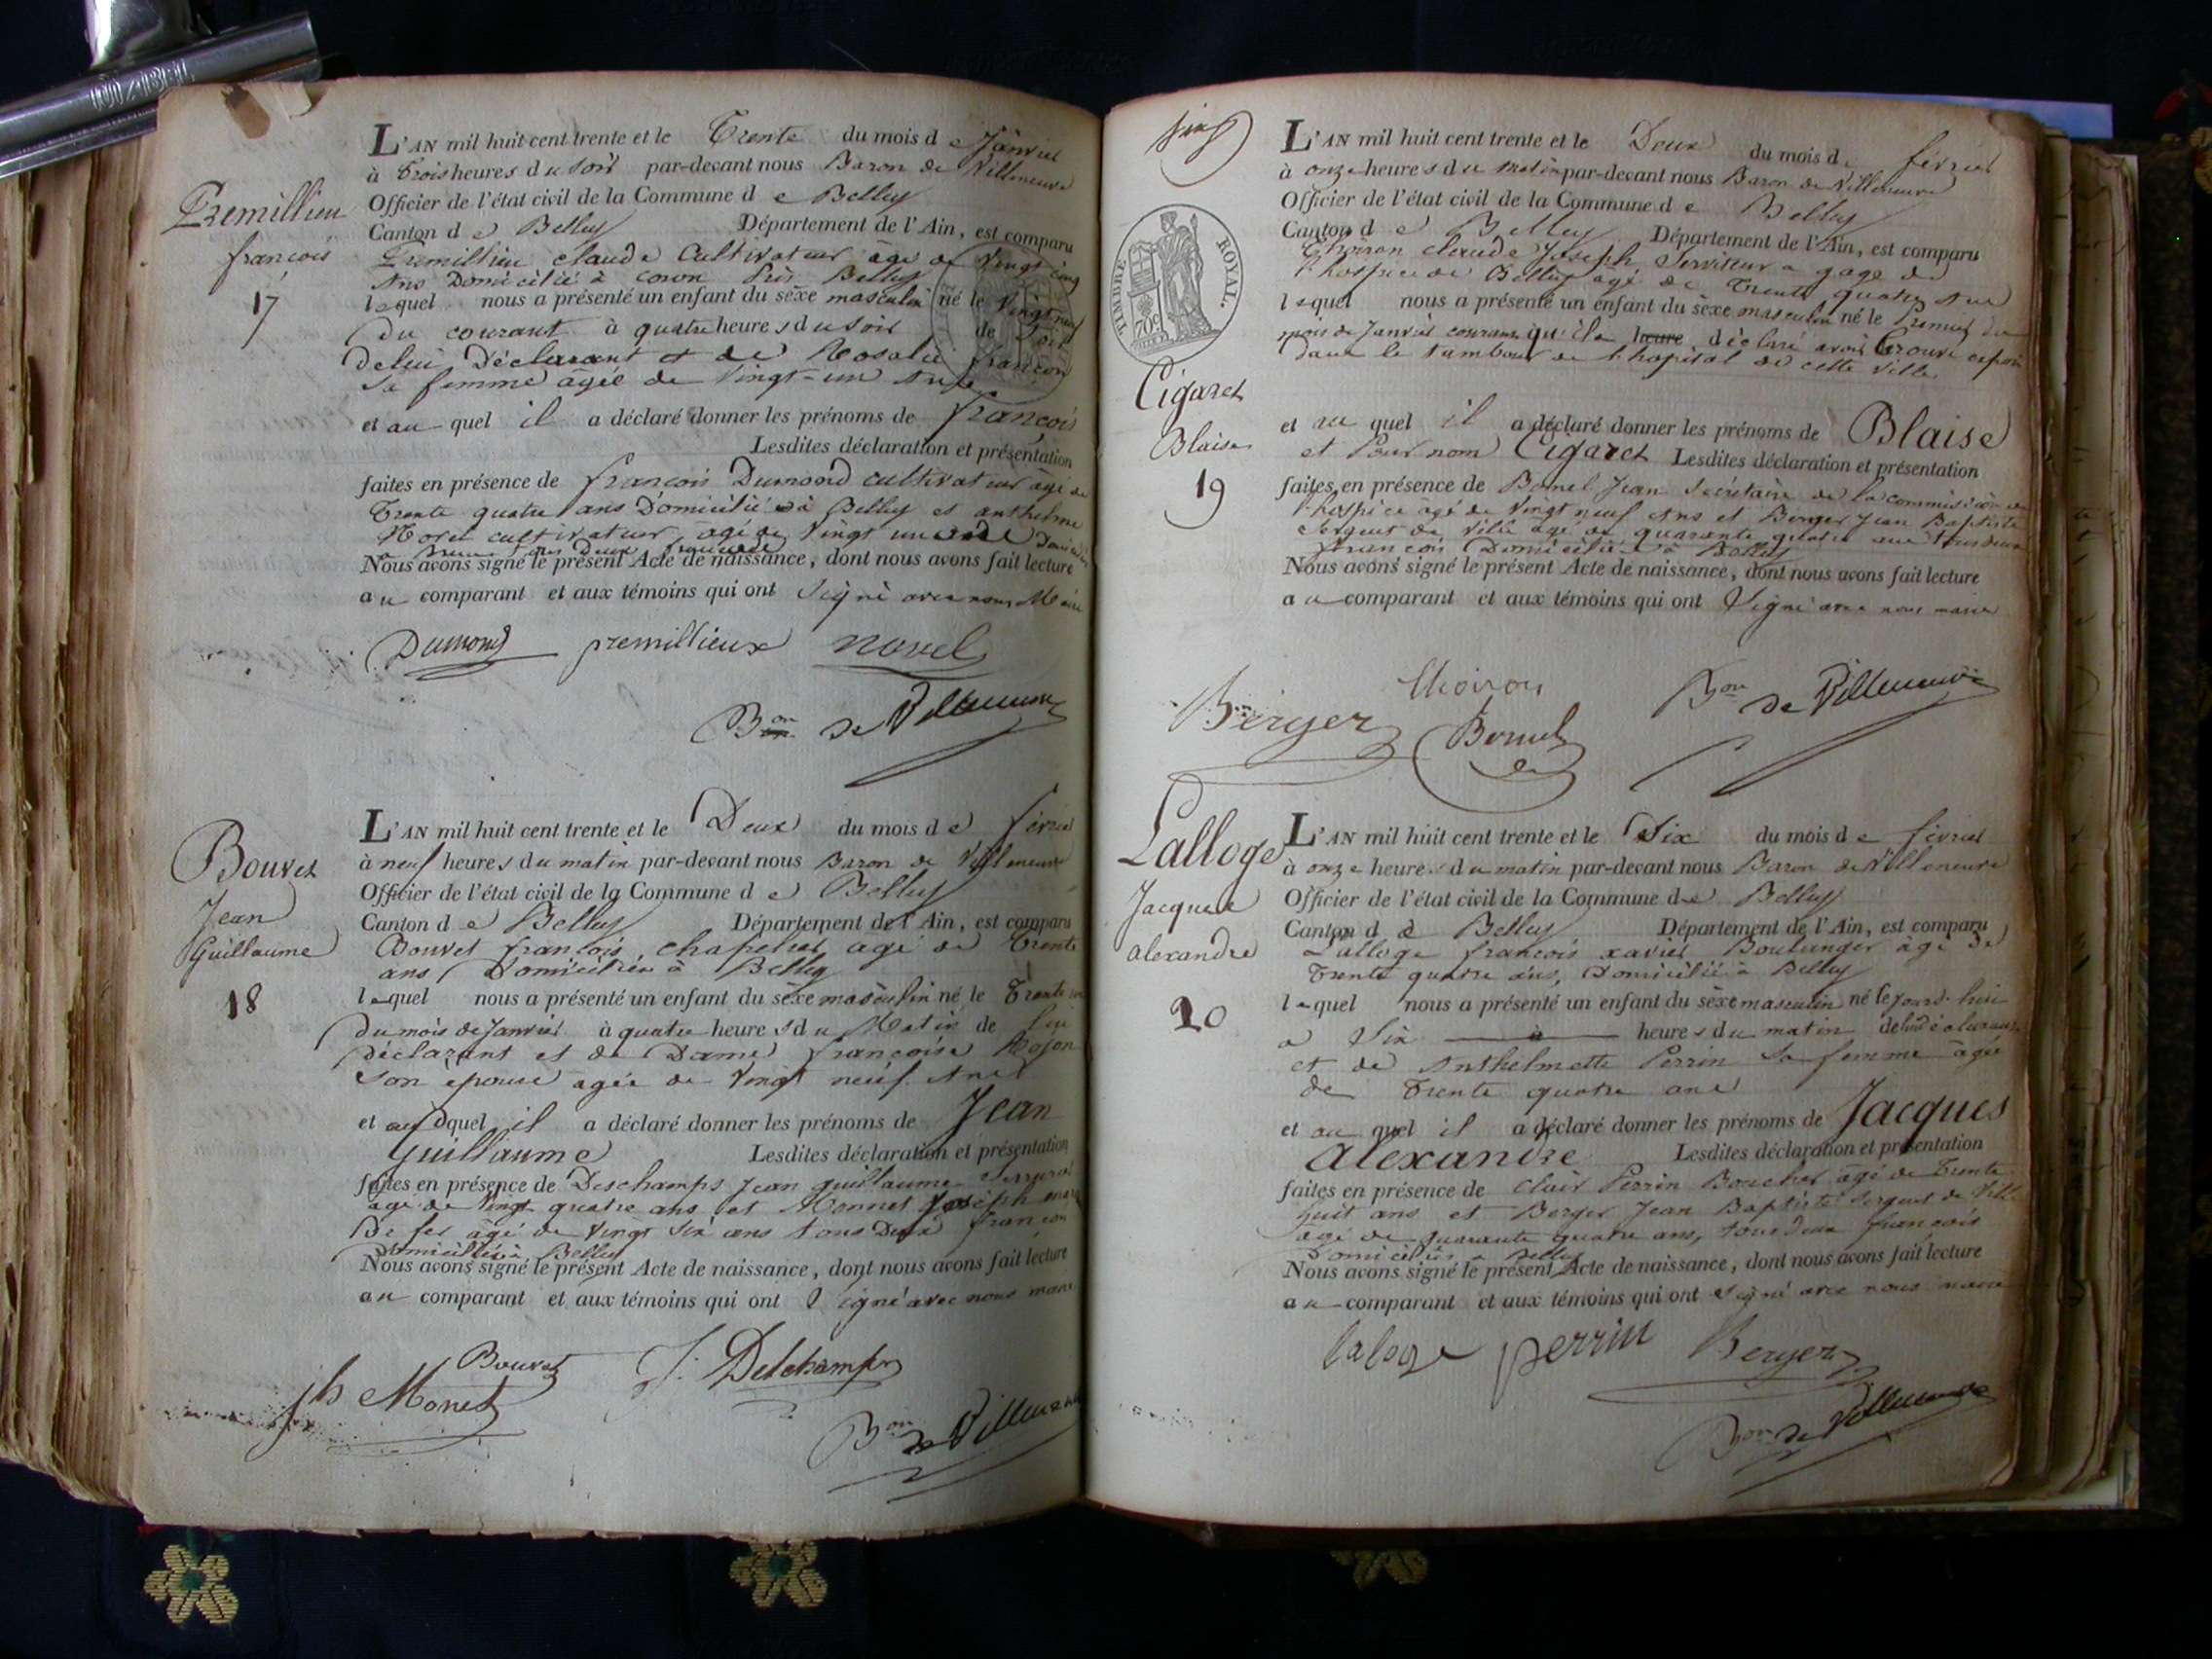 Premillieu
françois
17
L'AN mil huit cent trente et le Trente du mois de Janvier
à Trois heures du soir par-devant nous Baron de Villeneuve
Officier de l'état civil de la Commune de Belley
Canton de Belley Département de l'Ain, est comparu
Premillieu claude Cultivateur âgé de Vingt cinq
Ans Domicilié à Belley
lequel nous a présenté un enfant du sèxe masculin né le Vingt neuf
du courant à quatre heures du soir de
de lui Déclarant et de Rosalie françon
sa femme âgée de Vingt-un Ans
et au quel il a déclaré donner les prénoms de françois
Lesdites déclaration et présentation
faites en présence de françois Dumond cultivateur âgé de
Trente quatre ans Domicilié à Belley et anthelme
Novel cultivateur, âgé de Vingt un
tous Deux
Nous avons signé le présent Acte de naissance, dont nous avons fait lecture
au comparant et aux témoins qui ont Signé avec nous Maire
Dumond premillieux novel
Bon de Villeneuve
Bouvet
Jean
Guillaume
18
L'AN mil huit cent trente et le Deux du mois de février
à neuf heures du matin par-devant nous Baron de Villeneuve
Officier de l'état civil de la Commune de Belley
Canton de Belley Département de l'Ain, est comparu
Bouvet françois, chapelier agé de Trente
ans, Domicilié à Belley
lequel nous a présenté un enfant du sèxe masculin né le Trente un
du mois de Janvier à quatre heures du Matin de lui
déclarant et de Dame françoise
son épouse agée de Vingt neuf Ans
et au dquel il a déclaré donner les prénoms de Jean
Guillaume Lesdites déclaration et présentation
faites en présence de Deschamps Jean guillaume Serrurier
agé de Vingt quatre ans et Monnet Joseph
De fer âgé de Vingt Six ans tous Deux françois
Domiciliés à Belley
Nous avons signé le présent Acte de naissance, dont nous avons fait lecture
au comparant et aux témoins qui ont Signé avec nous maire
Bouvet J. Deschamps
jh Monet
Bon de Villeneuve
six
TIMBRE ROYAL.
70c
Cigaret
Blaise
19
L'AN mil huit cent trente et le Deux du mois de février
à onze heures du matin par-devant nous Baron de Villeneuve
Officier de l'état civil de la Commune de Belley
Canton de Belley Département de l'Ain, est comparu
Thoiron claude Joseph Serviteur a gage de
l'hospice de Belley agé de Trente quatre Ans
lequel nous a présenté un enfant du sèxe masculin né le Premier du
mois de Janvier courant qu'il a heure déclaré avoir trouvé exposé
Dans le tambour de l'hopital de cette Ville
et au quel il a déclaré donner les prénoms de Blaise
et Pour nom Cigaret Lesdites déclaration et présentation
faites en présence de Bornel Jean Secrétaire de la commission de
l'hospice âgé de Vingt neuf Ans et Berger Jean Baptiste
Sergent de Ville âgé de quarante quatre ans tous deux
françois Domiciliés à Belley
Nous avons signé le présent Acte de naissance, dont nous avons fait lecture
au comparant et aux témoins qui ont Signé avec nous maire
Thoiron Bon de Villeneuve
Berger Bornel
Lalloge
Jacques
alexandre
20
L'AN mil huit cent trente et le Six du mois de février
à onze heures du matin par-devant nous Baron de Villeneuve
Officier de l'état civil de la Commune de Belley
Canton de Belley Département de l'Ain, est comparu
Lalloge françois xavier Boulanger âgé de
Trente quatre ans, Domicilié à Belley
lequel nous a présenté un enfant du sèxe masculin né le jourd-hui
a Six à heures du matin de lui déclarant
et de Anthelmette Perrin Sa femme âgée
de Trente quatre ans
et au quel il a déclaré donner les prénoms de Jacques
Alexandre Lesdites déclaration et présentation
faites en présence de Clair Perrin Boucher âgé de Trente
huit ans et Berger Jean Baptiste Sergent de Ville
agé de quarante quatre ans, tous deux françois
Domiciliés a Belley
Nous avons signé le présent Acte de naissance, dont nous avons fait lecture
au comparant et aux témoins qui ont Signé avec nous maire
laloge perrin Berger
Bon de Villeneuve